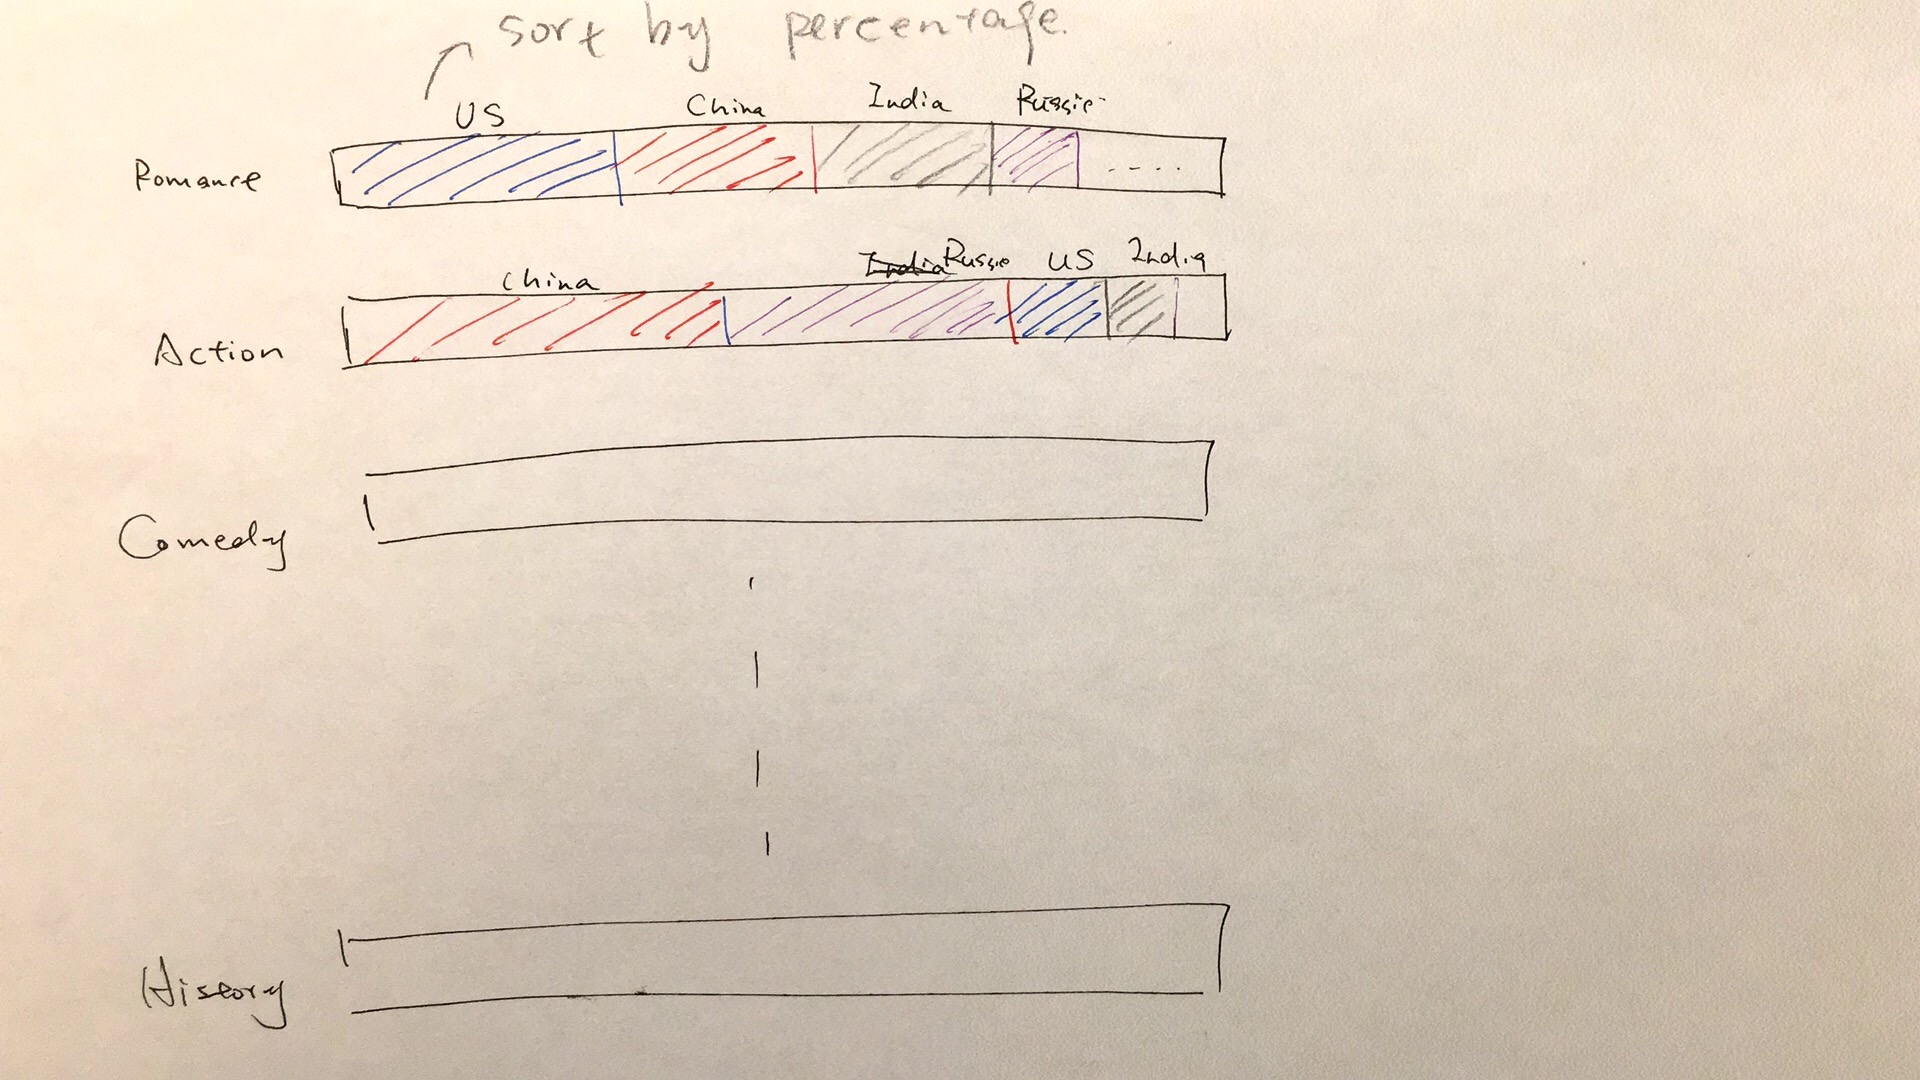 sort by percentage.
US China India Russia
Romance
China India Russia US India
Action
Comedy
History